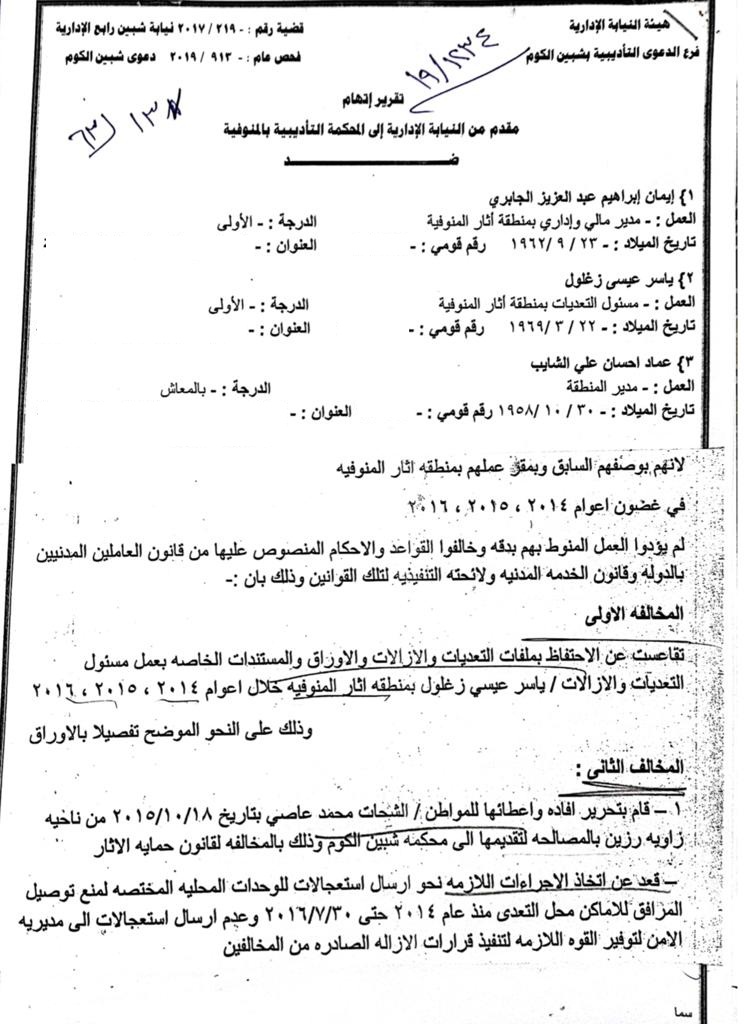 هيئة النيابة الإدارية
فرع الدعوى التأديبية بشبين الكوم
قضية رقم : - ٢١٩ / ٢٠١٧ نيابة شبين رابع الإدارية
فحص عام : - ٩١٣ / ٢٠١٩ دعوى شبين الكوم
١٩/١٢٣٤
تقرير إتهام
مقدم من النيابة الإدارية إلى المحكمة التأديبية بالمنوفية
ضــــــــــــــد
١} إيمان إبراهيم عبد العزيز الجابري
العمل : - مدير مالي وإداري بمنطقة أثار المنوفية الدرجة : - الأولى
تاريخ الميلاد : - ٢٣ / ٩ / ١٩٦٢ رقم قومي : - العنوان : -
٢} ياسر عيسى زغلول
العمل : - مسئول التعديات بمنطقة أثار المنوفية الدرجة : - الأولى
تاريخ الميلاد : - ٢٢ / ٣ / ١٩٦٩ رقم قومي : - العنوان : -
٣} عماد احسان علي الشايب
العمل : - مدير المنطقة الدرجة : - بالمعاش
تاريخ الميلاد : - ٣٠ / ١٠ / ١٩٥٨ رقم قومي : - العنوان : -
لانهم بوصفهم السابق وبمقر عملهم بمنطقه اثار المنوفيه
في غضون اعوام ٢٠١٤ ، ٢٠١٥ ، ٢٠١٦
لم يؤدوا العمل المنوط بهم بدقه وخالفوا القواعد والاحكام المنصوص عليها من قانون العاملين المدنيين
بالدوله وقانون الخدمه المدنيه ولائحته التنفيذيه لتلك القوانين وذلك بان :-
المخالفه الاولى
تقاعست عن الاحتفاظ بملفات التعديات والازالات والاوراق والمستندات الخاصه بعمل مسئول
التعديات والازالات / ياسر عيسي زغلول بمنطقه اثار المنوفيه خلال اعوام ٢٠١٤ ، ٢٠١٥ ، ٢٠١٦
وذلك على النحو الموضح تفصيلا بالاوراق
المخالف الثانى :
١ – قام بتحرير افاده واعطائها للمواطن / الشحات محمد عاصي بتاريخ ٢٠١٥/١٠/١٨ من ناحيه
زاويه رزين بالمصالحه لتقديمها الى محكمه شبين الكوم وذلك بالمخالفه لقانون حمايه الاثار
– قعد عن اتخاذ الاجراءات اللازمه نحو ارسال استعجالات للوحدات المحليه المختصه لمنع توصيل
المرافق للاماكن محل التعدى منذ عام ٢٠١٤ حتى ٢٠١٦/٧/٣٠ وعدم ارسال استعجالات الى مديريه
الامن لتوفير القوه اللازمه لتنفيذ قرارات الازاله الصادره من المخالفين
سما